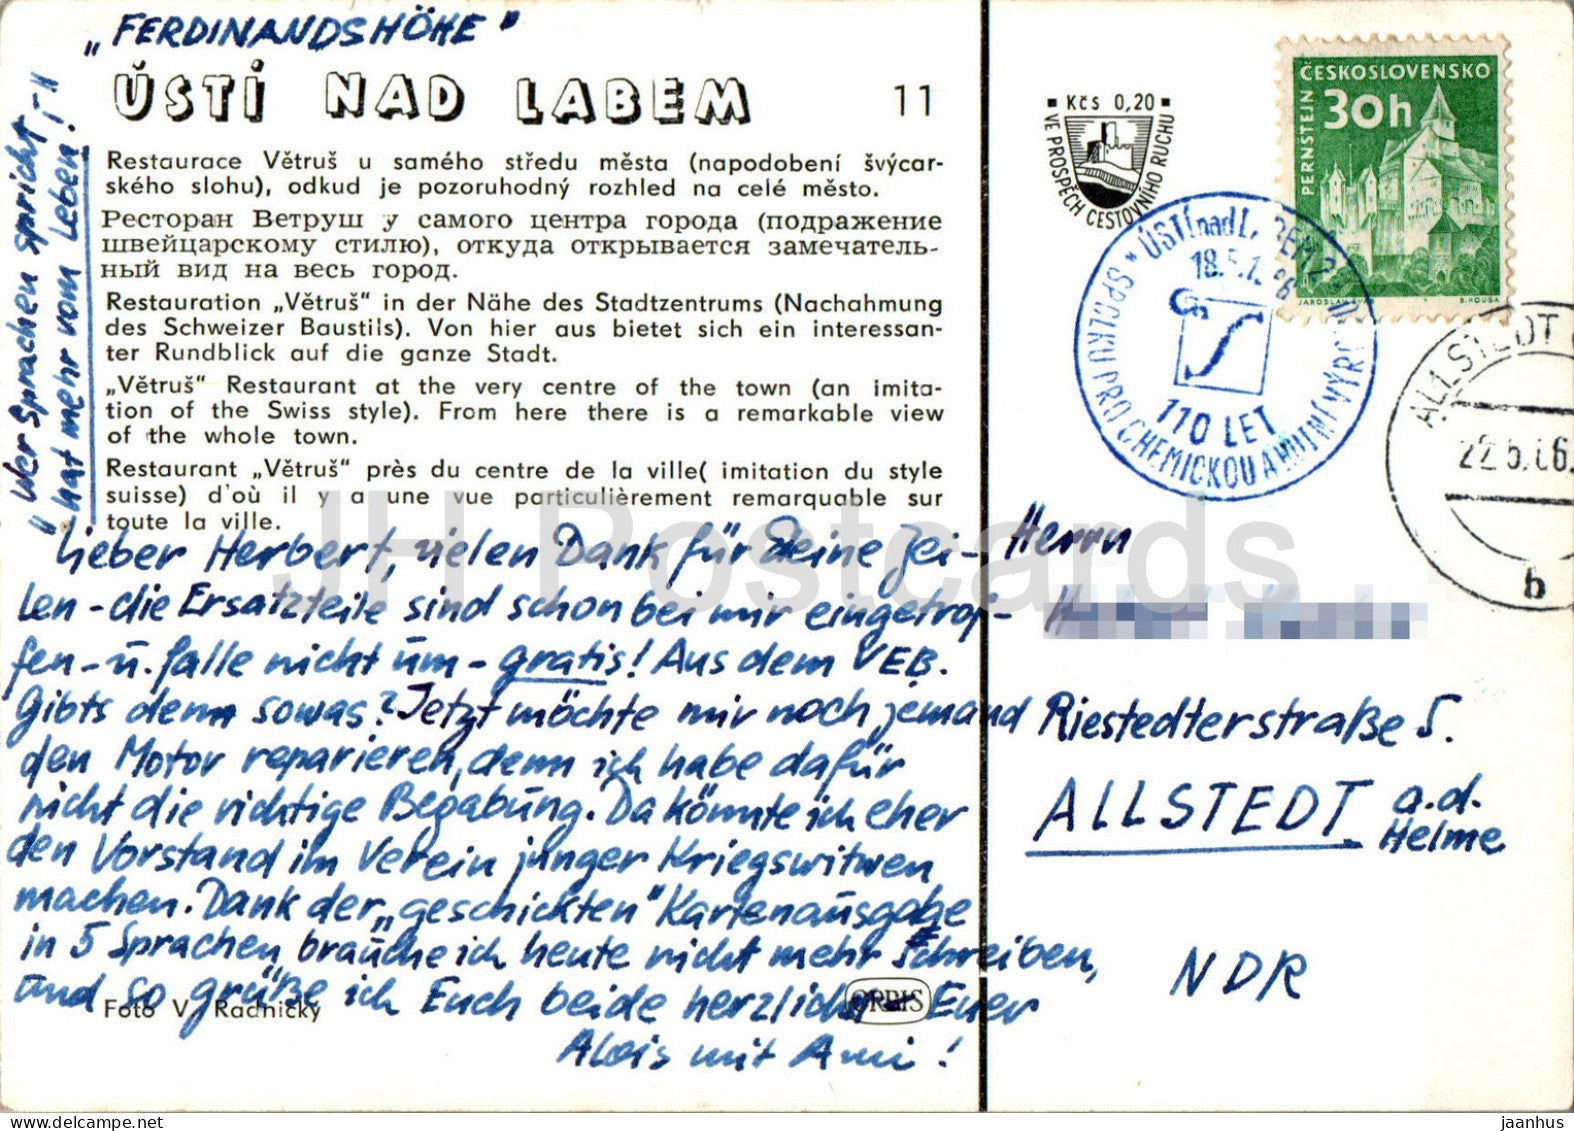 „FERDINANDSHÖHE"
ÚSTÍ NAD LABEM 11
Restaurace Větruš u samého středu města (napodobení švýcar-
ského slohu), odkud je pozoruhodný rozhled na celé město.
Ресторан Ветруш у самого центра города (подражение
швейцарскому стилю), откуда открывается замечатель-
ный вид на весь город.
Restauration „Větruš" in der Nähe des Stadtzentrums (Nachahmung
des Schweizer Baustils). Von hier aus bietet sich ein interessan-
ter Rundblick auf die ganze Stadt.
„Větruš" Restaurant at the very centre of the town (an imita-
tion of the Swiss style). From here there is a remarkable view
of the whole town.
Restaurant „Větruš" près du centre de la ville( imitation du style
suisse) d'où il y a une vue particulièrement remarquable sur
toute la ville.
"Wer Sprachen spricht -
hat mehr vom Leben!"
Lieber Herbert, vielen Dank für Deine Zei-
len - die Ersatzteile sind schon bei mir eingetrof-
fen - u. falle nicht um - gratis! Aus dem VEB.
Gibts denn sowas? Jetzt möchte mir noch jemand
den Motor reparieren, denn ich habe dafür
nicht die richtige Begabung. Da könnte ich eher
den Vorstand im Verein junger Kriegswitwen
machen. Dank der „geschickten" Kartenausgabe
in 5 Sprachen, brauche ich heute nicht mehr schreiben,
und so grüße ich Euch beide herzlichst Euer
Alois mit Ami!
Foto V. Radnický
ORBIS
Kčs 0,20
VE PROSPĚCH CESTOVNÍHO RUCHU
ČESKOSLOVENSKO
30h
PERNŠTEJN
JAROSLAV
B. HOUSA
ÚSTÍ nad LABEM 2
18.5.
110 LET
SPOLKU PRO CHEMICKOU A HUTNÍ VÝROBU
ALLSTEDT
22.5.66
b
Herrn
Riestedterstraße 5.
ALLSTEDT a.d.
Helme
NDR
JH Postcards
jaanhus
www.delcampe.net